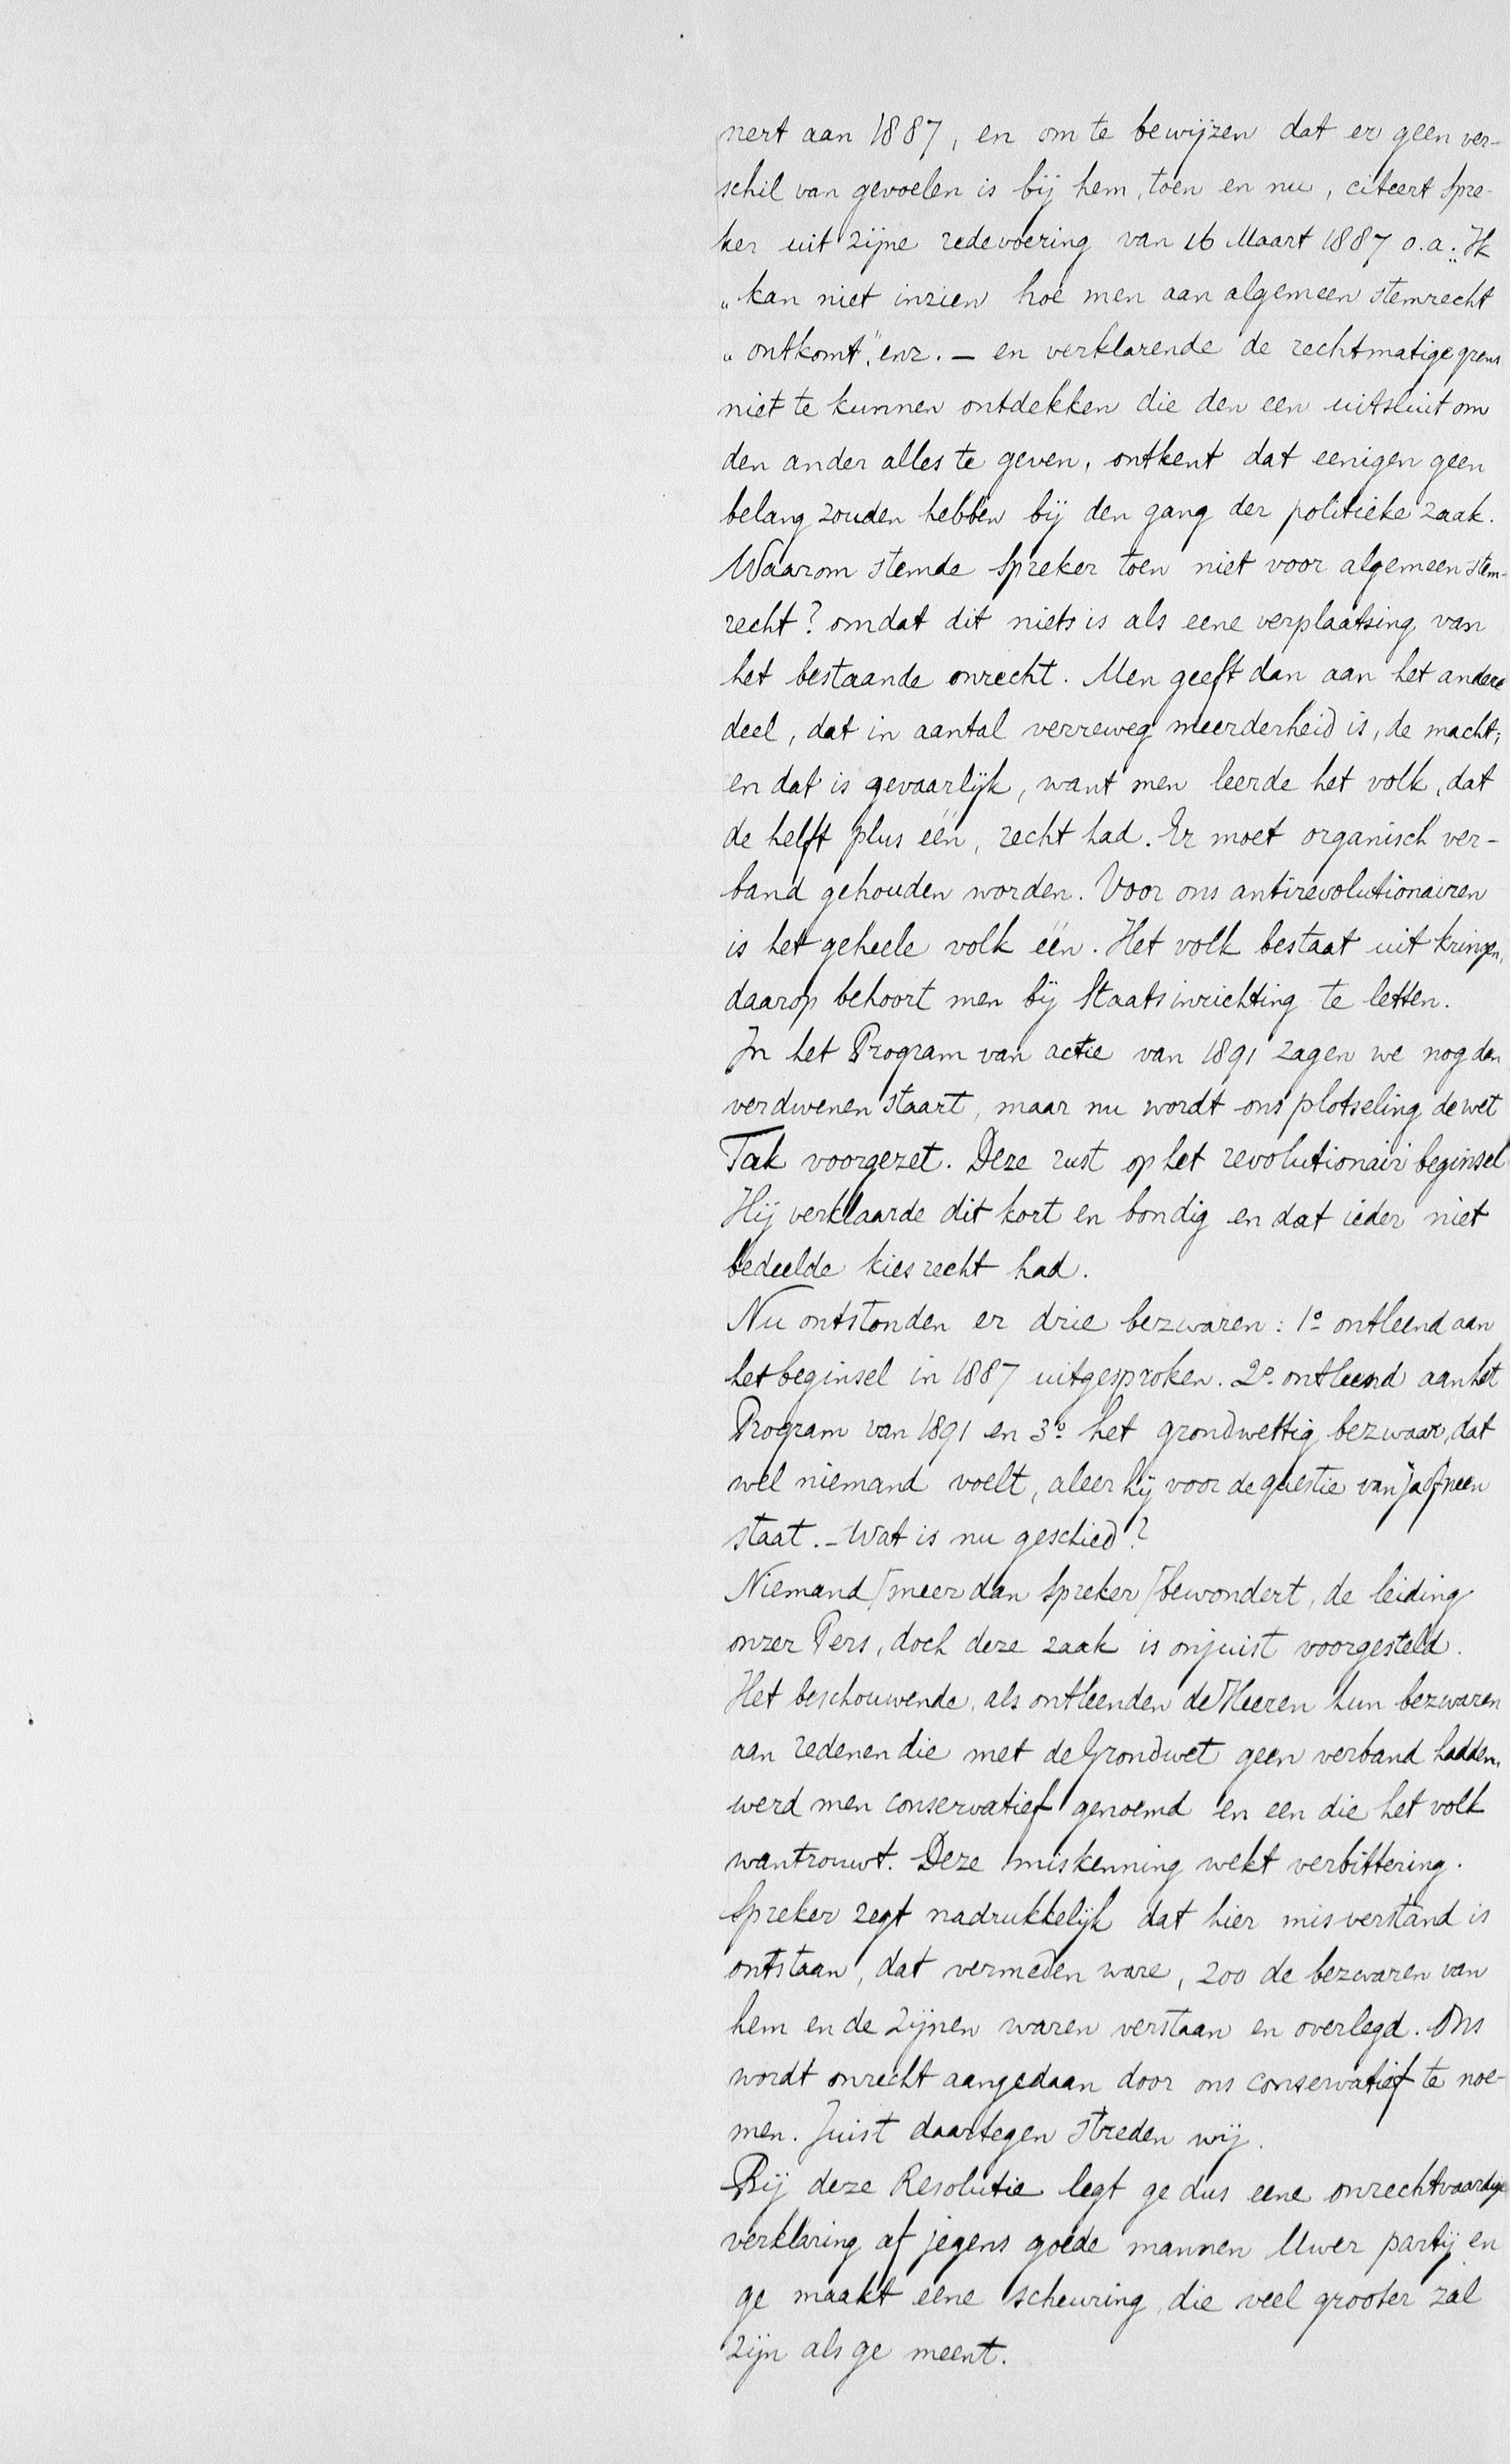 nert aan 1887, en om te bewijzen dat er geen ver-
schil van gevoelen is bij hem, toen en nu, citeert Spre-
ker uit zijne redevoering van 16 Maart 1887 o.a. „Ik
„kan niet inzien hoe men aan algemeen stemrecht
„ontkomt," enz. – en verklarende de rechtmatige grens
niet te kunnen ontdekken die den een uitsluit om
den ander alles te geven, ontkent dat eenigen geen
belang zouden hebben bij den gang der politieke zaak.
Waarom stemde Spreker toen niet voor algemeen stem-
recht? omdat dit niets is als eene verplaatsing van
het bestaande onrecht. Men geeft dan aan het andere
deel, dat in aantal verreweg meerderheid is, de macht;
en dat is gevaarlijk, want men leerde het volk, dat
de helft plus één, recht had. Er moet organisch ver-
band gehouden worden. Voor ons antirevolutionairen
is het geheele volk één. Het volk bestaat uit kringen,
daarop behoort men bij Staatsinrichting te letten.
In het Program van actie van 1891 zagen we nog den
verdwenen staart, maar nu wordt ons plotseling de wet
Tak voorgezet. Deze rust op het revolutionair beginsel
Hij verklaarde dit kort en bondig en dat ieder niet
bedeelde kiesrecht had.
Nu ontstonden er drie bezwaren: 1º ontleend aan
het beginsel in 1887 uitgesproken. 2º ontleend aan het
Program van 1891 en 3º het grondwettig bezwaar, dat
wel niemand voelt, aleer hij voor de questie van ja of neen
staat. – Wat is nu geschied?
Niemand [meer dan Spreker] bewondert, de leiding
onzer Pers, doch deze zaak is onjuist voorgesteld.
Het beschouwende, als ontleenden de Heeren hun bezwaren
aan redenen die met de Grondwet geen verband hadden,
werd men conservatief genoemd en een die het volk
wantrouwt. Deze miskenning wekt verbittering.
Spreker zegt nadrukkelijk dat hier misverstand is
ontstaan, dat vermeden ware, zoo de bezwaren van
hem en de zijnen waren verstaan en overlegd. Ons
wordt onrecht aangedaan door ons conservatief te noe-
men. Juist daartegen streden wij.
Bij deze Resolutie legt ge dus eene onrechtvaardige
verklaring af jegens goede mannen Uwer partij en
ge maakt eene scheuring, die veel grooter zal
zijn als ge meent.